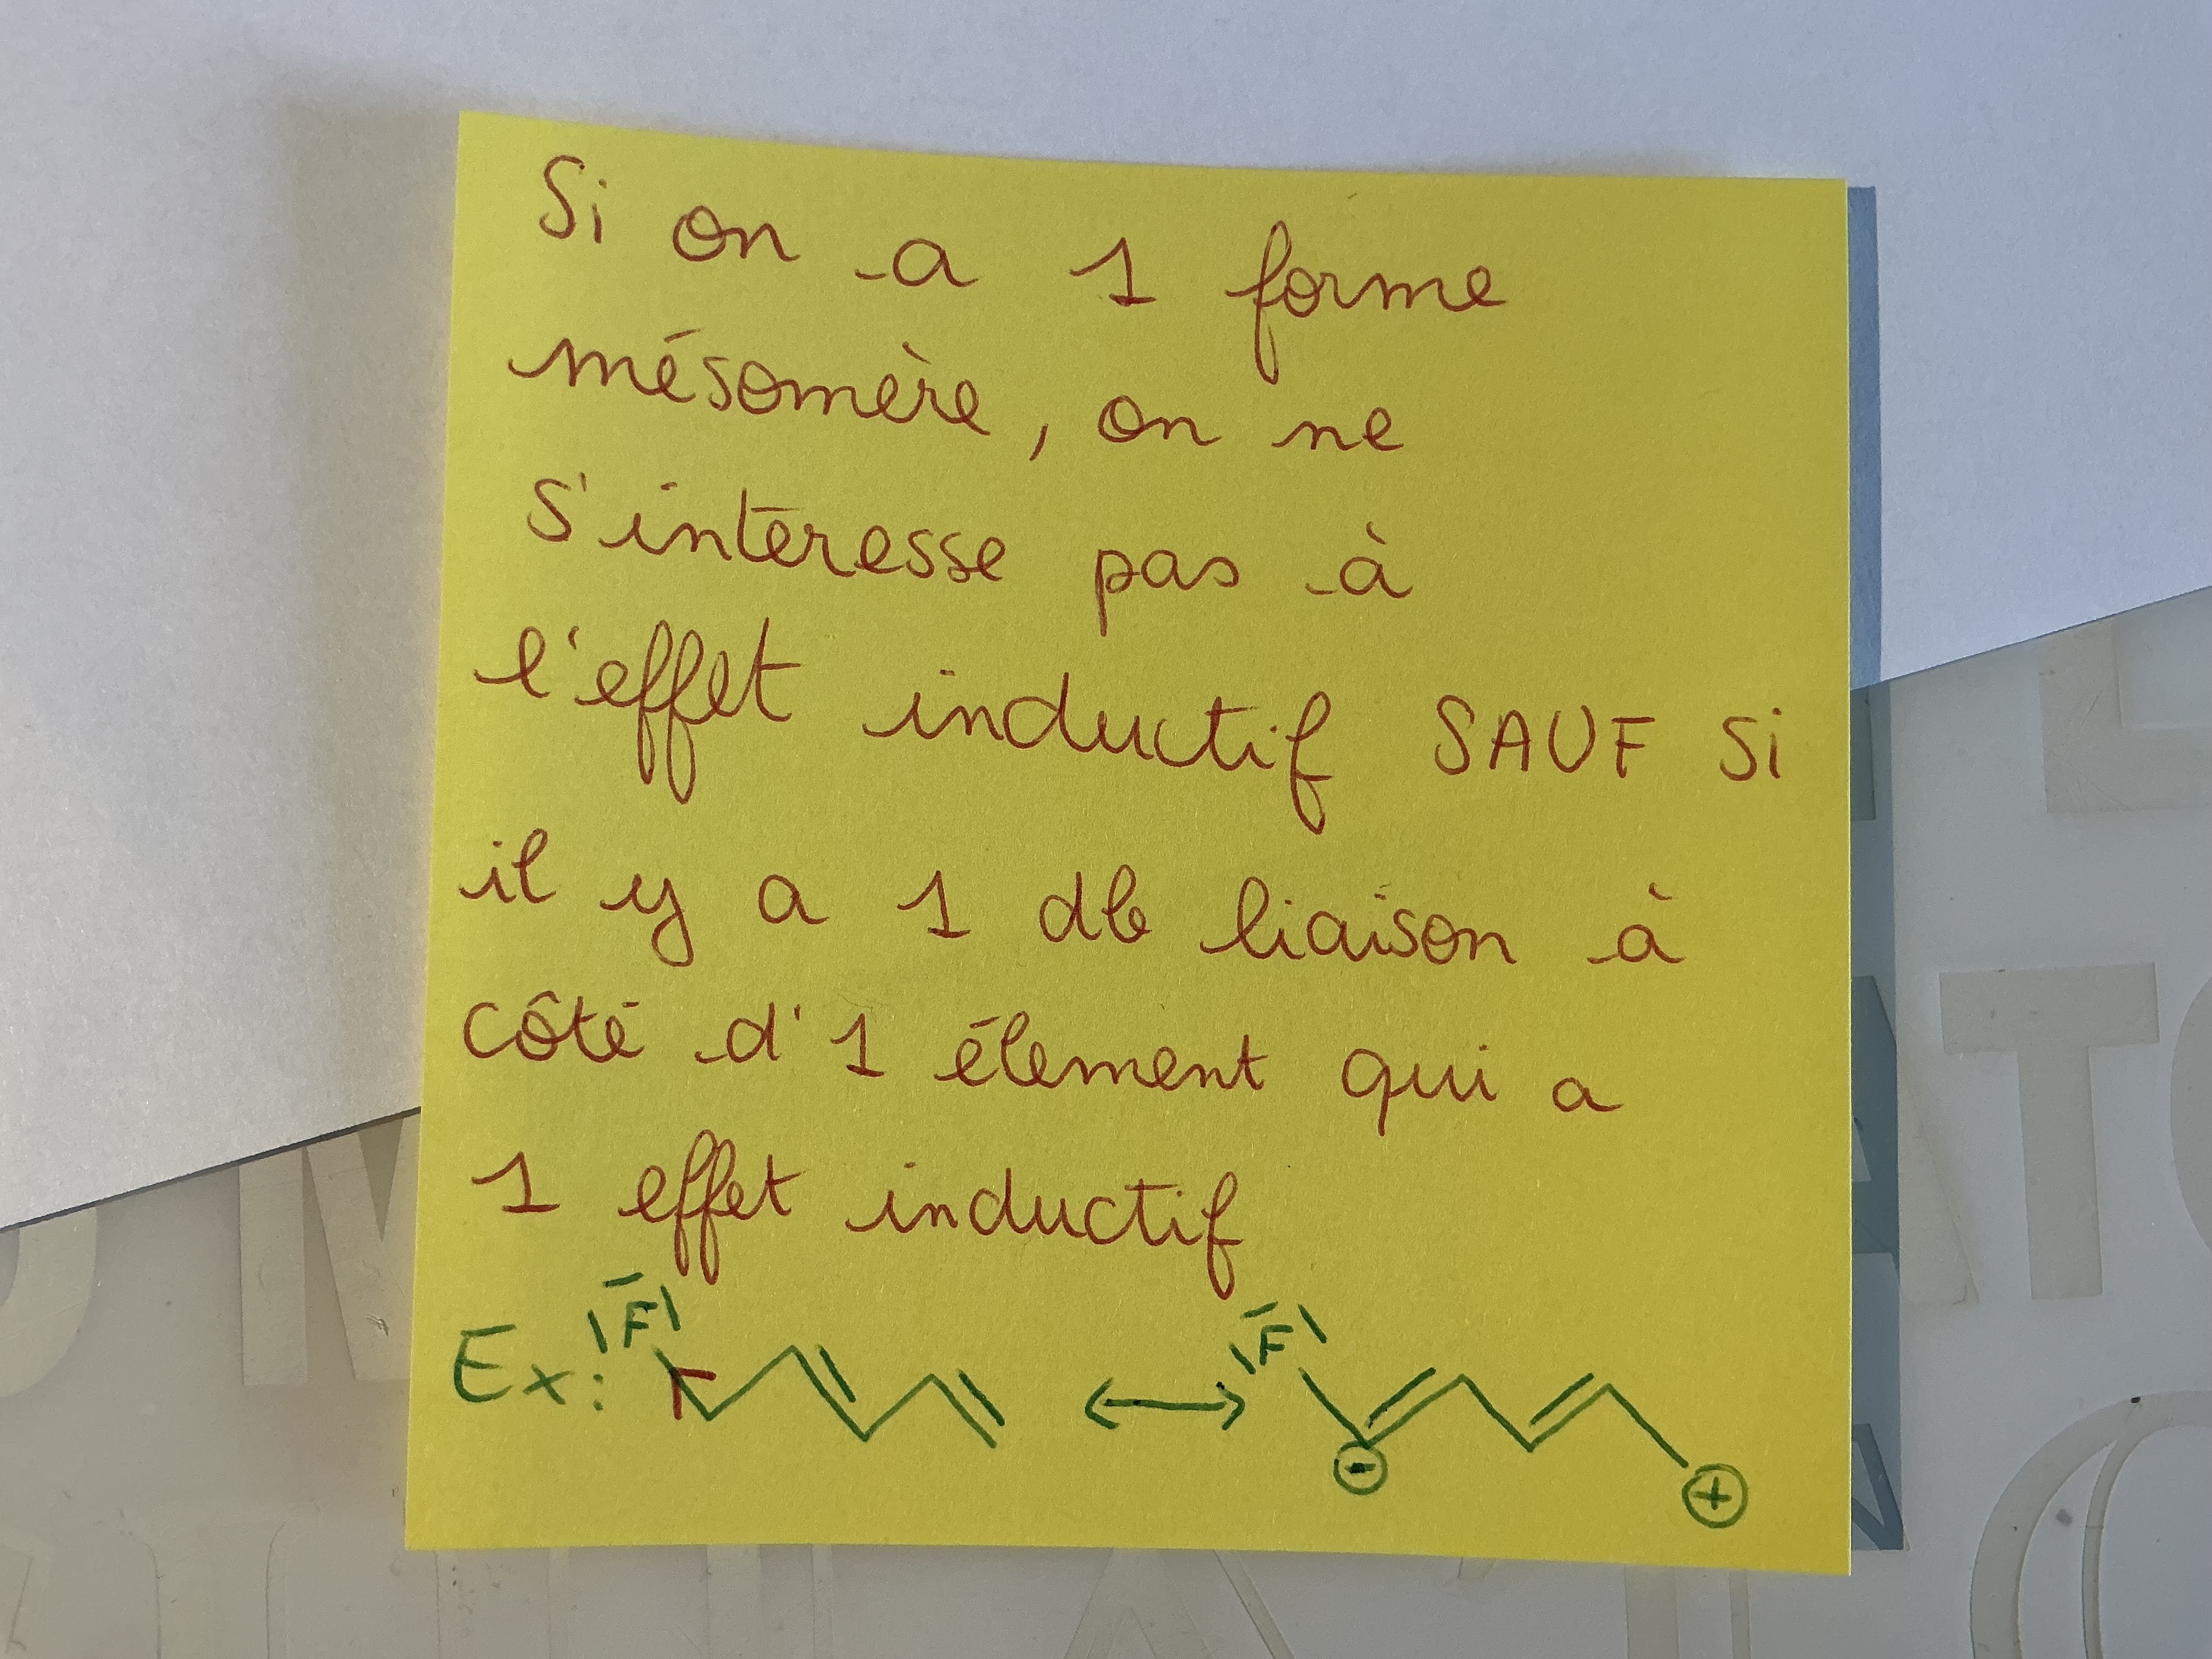 Si on a 1 forme
mésomère, on ne
s'intéresse pas à
l'effet inductif SAUF si
il y a 1 db liaison à
côté d'1 élément qui a
1 effet inductif
Ex: F ⟷ F
⊖ ⊕